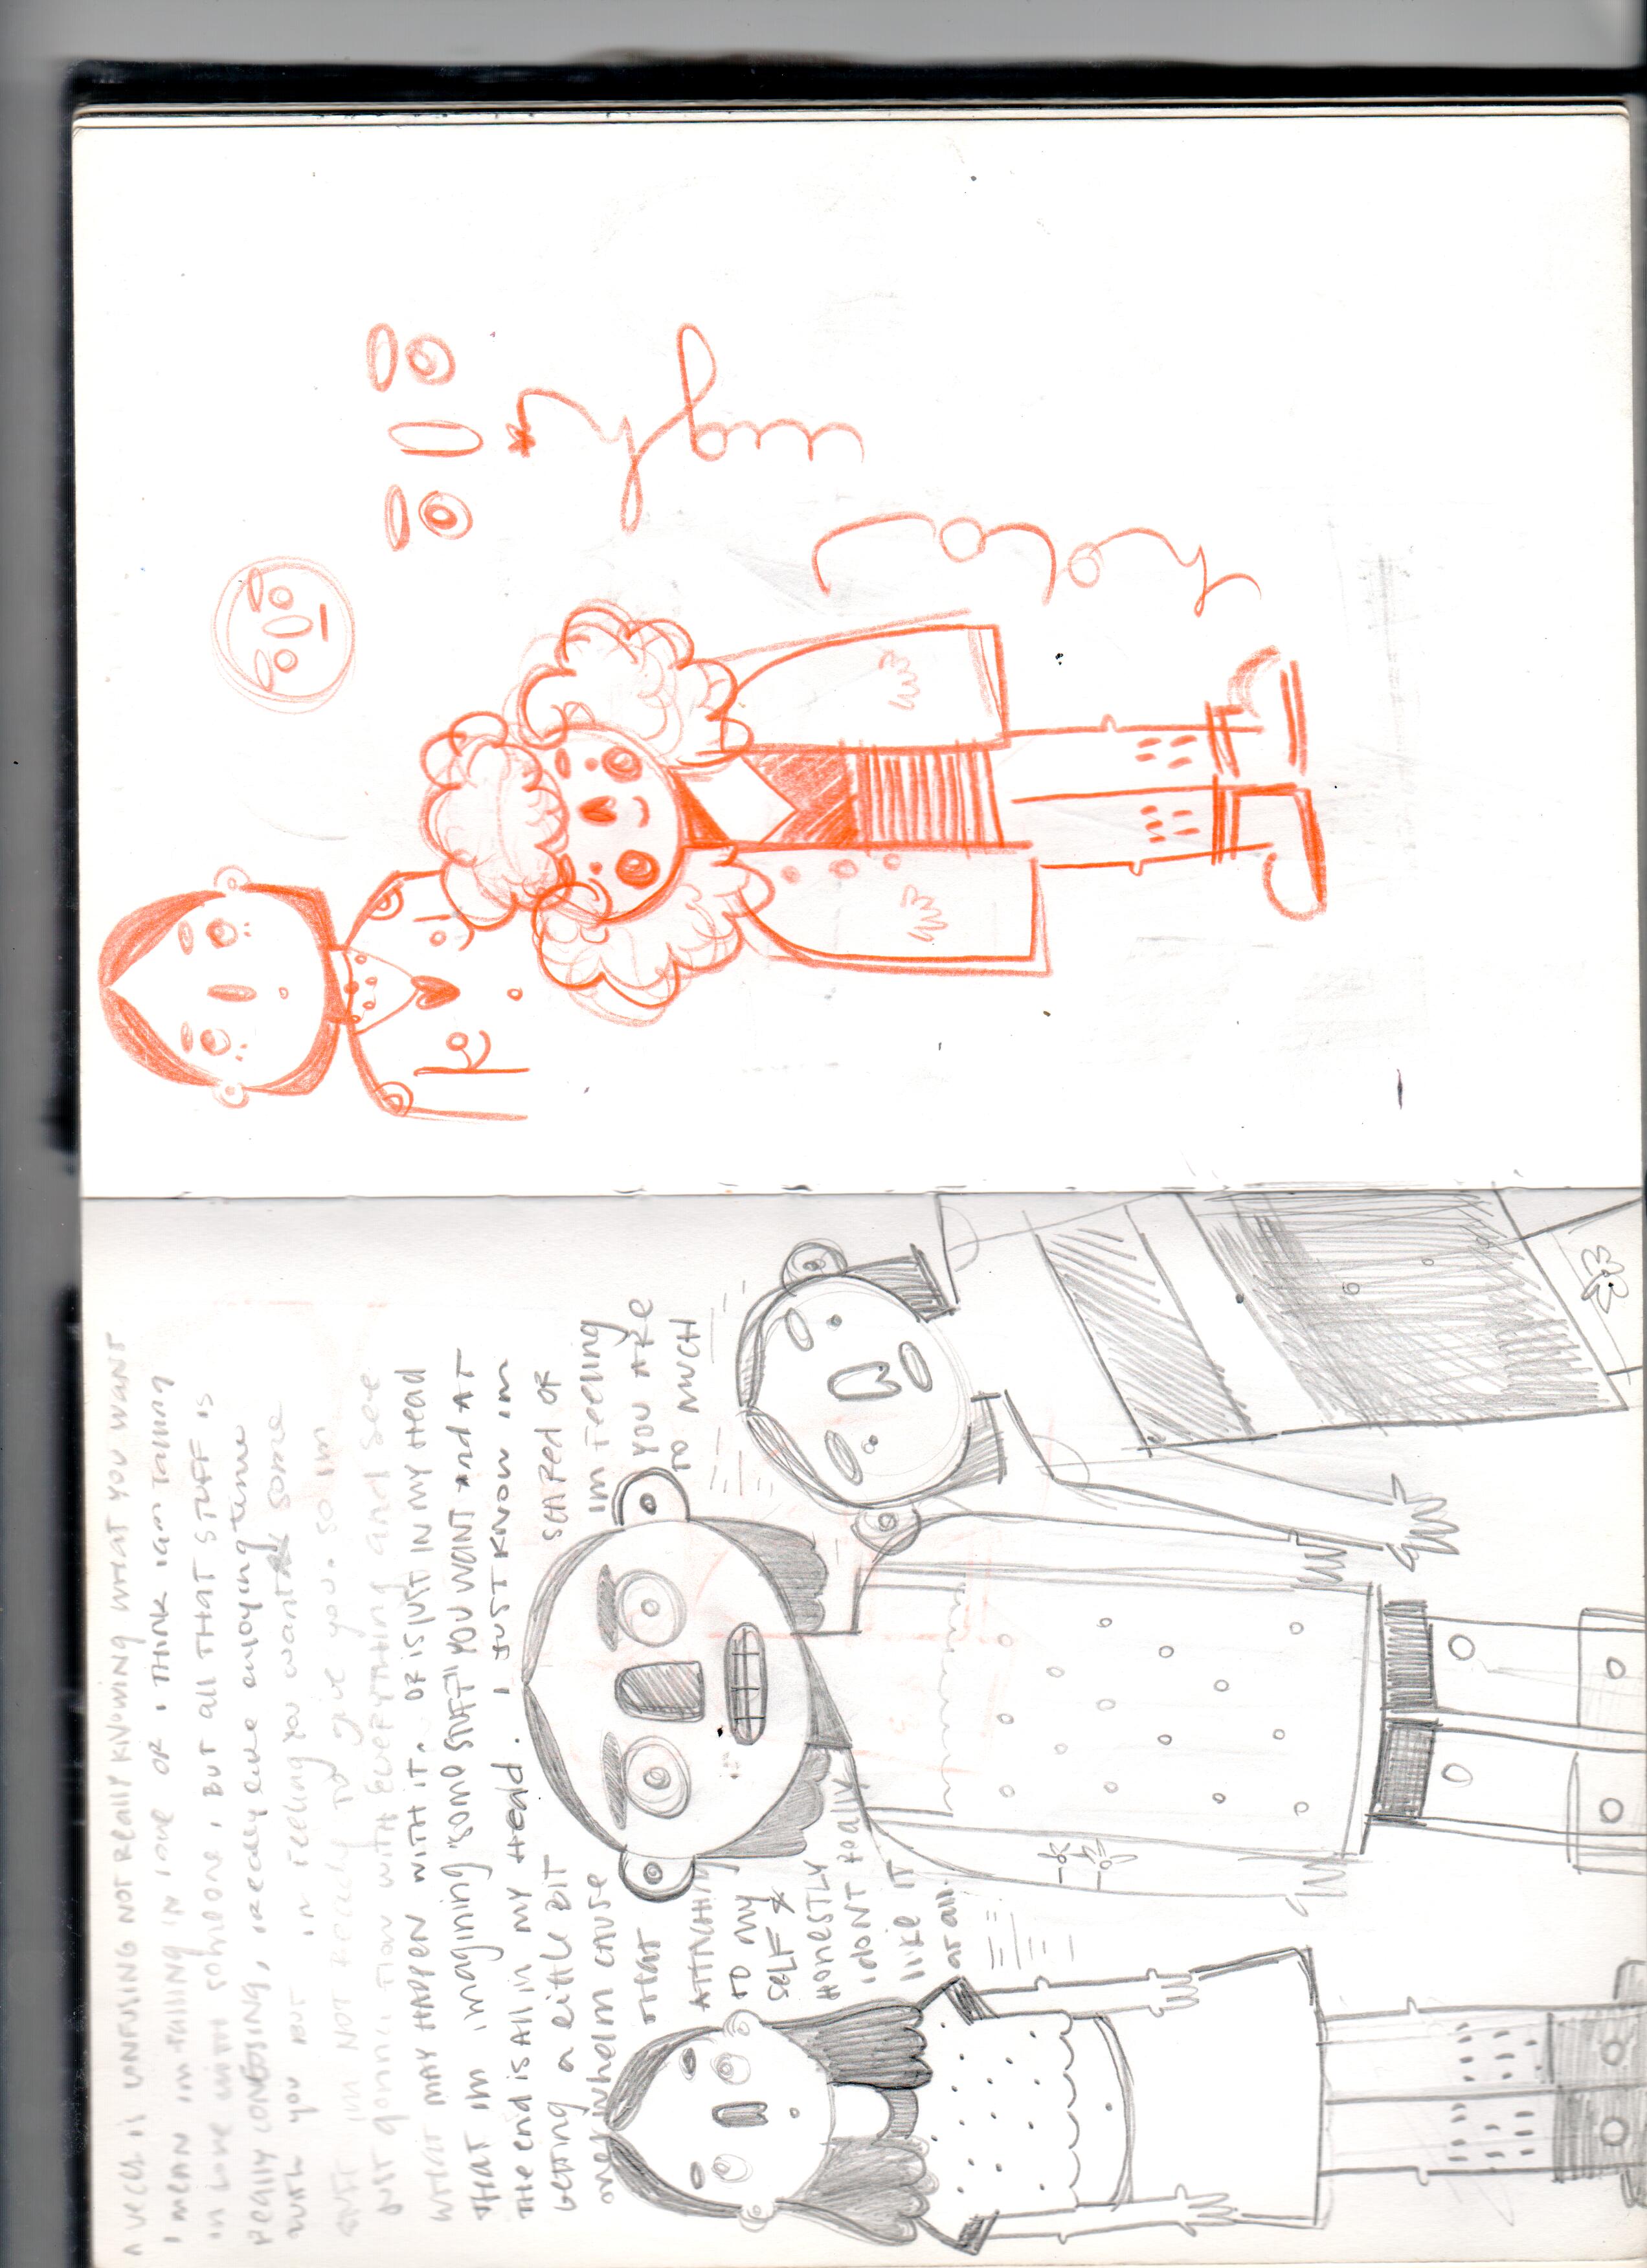 A VECES IS CONFUSING NOT REALLY KNOWING WHAT YOU WANT
I MEAN IM FALLING IN LOVE OR I THINK IAM FALLING
IN LOVE WITH SOMEONE, BUT ALL THAT STUFF IS
REALLY CONFUSING, I REALLY LIKE ENJOYING TIME
WITH YOU BUT IM FEELING YOU WANT SOME
IM NOT READY TO GIVE YOU. SO IM
JUST GONNA FLOW WITH EVERYTHING AND SEE
WHAT MAY HAPPEN WITH IT. OR IS JUST IN MY HEAD
THAT IM IMAGINING "SOME STUFF" YOU WANT AND AT
THE END IS ALL IN MY HEAD. I JUST KNOW IM
GETTING A LITTLE BIT SCARED OF
OVERWHELM CAUSE IM FEELING
THAT YOU ARE
ATTACHIN TO MUCH
TO MY
SELF &
HONESTLY
I DONT REALLY
LIKE IT
AT ALL.